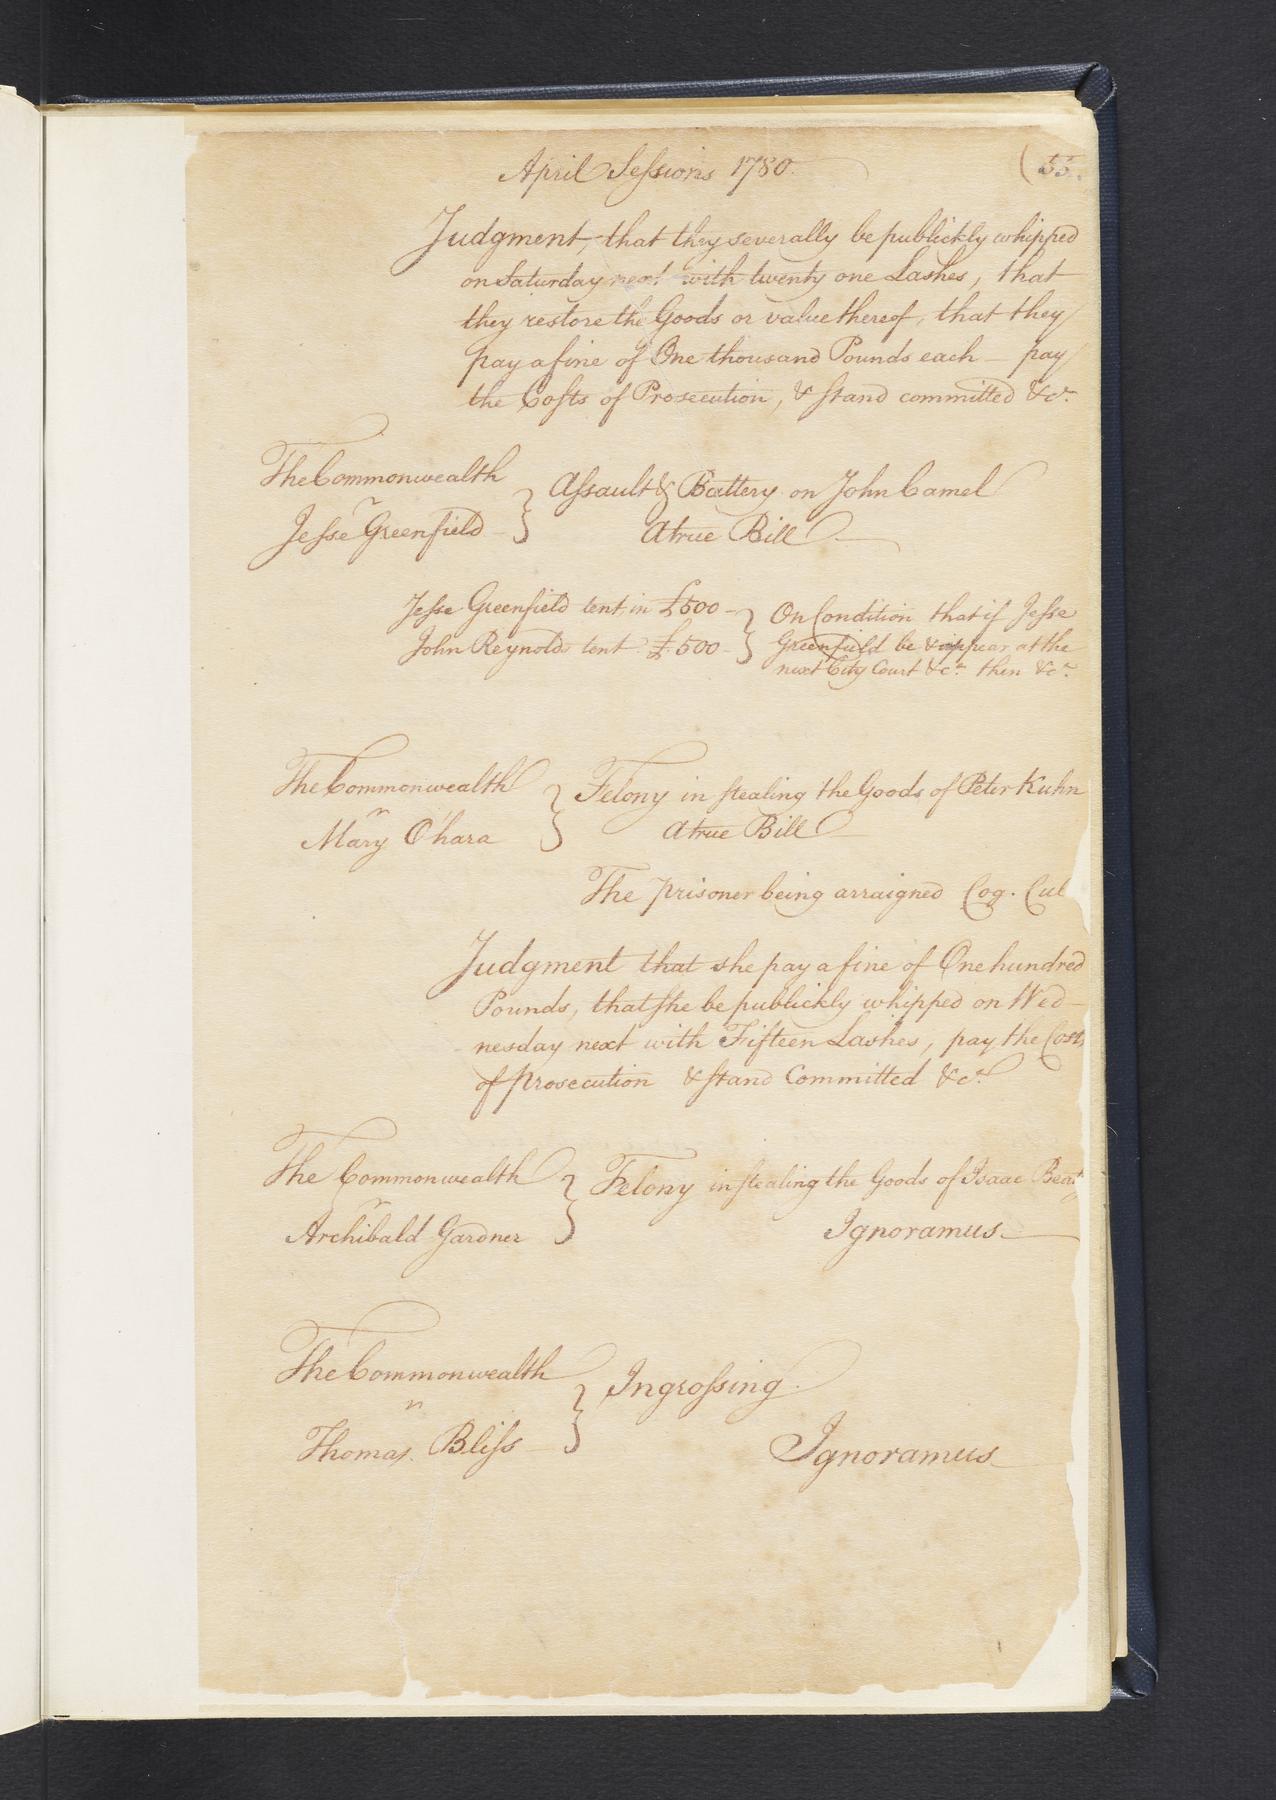 April Sessions 1780.
(55.
Judgment, that they severally be publickly whipped
on Saturday next with twenty one Lashes, that
they restore the Goods or value thereof, that they
pay a fine of One thousand Pounds each - pay
the Costs of Prosecution, & stand committed &cᵃ
The Commonwealth
v
Jesse Greenfield
} Assault & Battery on John Camel
A true Bill
Jesse Greenfield tent in £500 -
John Reynolds tent £500 -
} On Condition that if Jesse
Greenfield be & appear at the
next City Court &cᵃ then &cᵃ
The Commonwealth
v
Mary O'hara
} Felony in stealing the Goods of Peter Kuhn
A true Bill
The prisoner being arraigned Cog. Cul
Judgment that she pay a fine of One hundred
Pounds, that she be publickly whipped on Wed-
nesday next with Fifteen Lashes, pay the Costs
of prosecution & stand Committed &cᵃ
The Commonwealth
v
Archibald Gardner
} Felony in stealing the Goods of Isaac
Ignoramus
The Commonwealth
v
Thomas Bliss
} Ingrossing.
Ignoramus